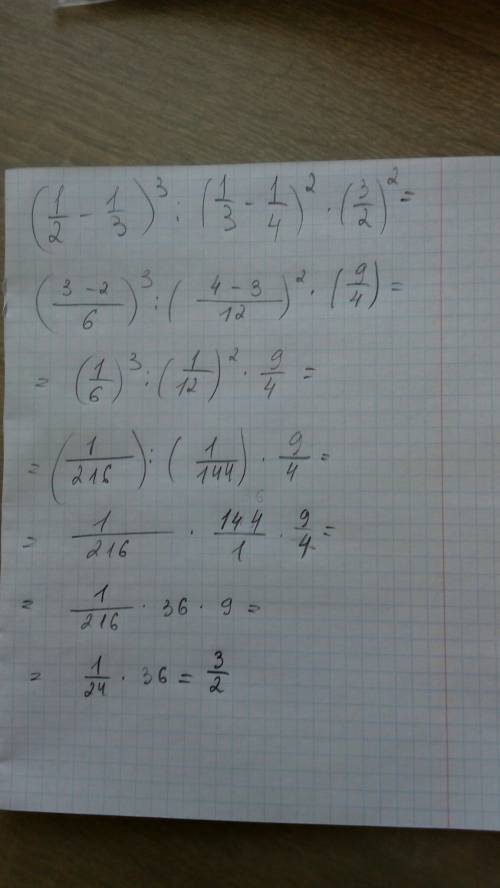 (1/2 - 1/3)³ : (1/3 - 1/4)² · (3/2)² =
((3-2)/6)³ : ((4-3)/12)² · (9/4) =
= (1/6)³ : (1/12)² · 9/4 =
= (1/216) : (1/144) · 9/4 =
= 1/216 · 144/1 · 9/4 =
= 1/216 · 36 · 9 =
= 1/24 · 36 = 3/2